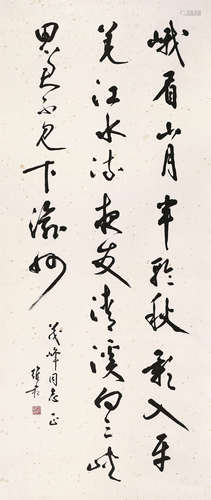 峨眉山月半輪秋影入平
羌江水流夜發清溪向三峽
思君不見下渝州
茂峰同志正